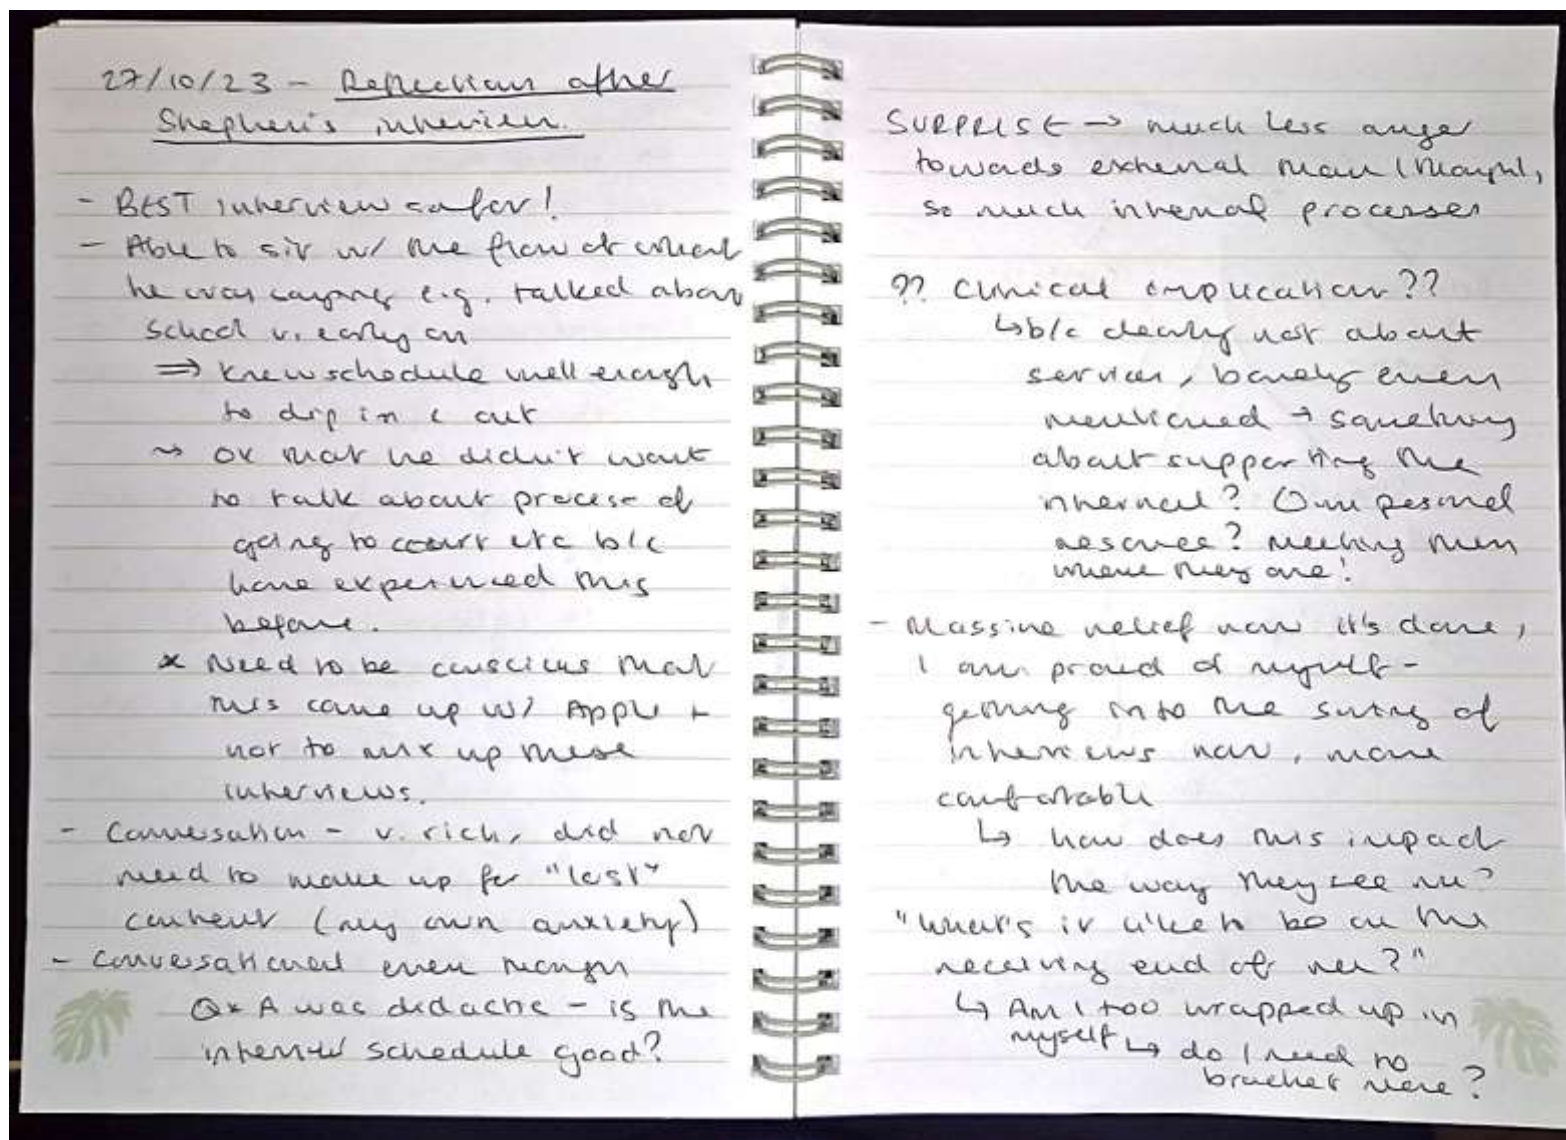 27/10/23 - Reflections after
Stephen's interview.
- BEST interview so far!
- Able to sit w/ the flow of what
he was saying e.g. talked about
school v. early on
⇒ knew schedule well enough
to dip in & out
~> OK that he didn't want
to talk about process of
going to court etc b/c
have experienced this
before.
* Need to be conscious that
this came up w/ Apple +
not to mix up these
interviews.
- Conversation - v. rich, did not
need to make up for "lost"
content (my own anxiety)
- Conversational even though
Q+A was didactic - is the
interview schedule good?
SURPRISE → much less anger
towards external than I thought,
so much internal processes
?? Clinical implication??
↳ b/c clearly not about
services, barely even
mentioned → something
about supporting the
internal? Own personal
resource? Meeting them
where they are!
- Massive relief now it's done,
I am proud of myself -
getting into the swing of
interviews now, more
comfortable
↳ how does this impact
the way they see me?
"What's it like to be on the
receiving end of me?"
↳ Am I too wrapped up in
myself ↳ do I need to
bracket more?